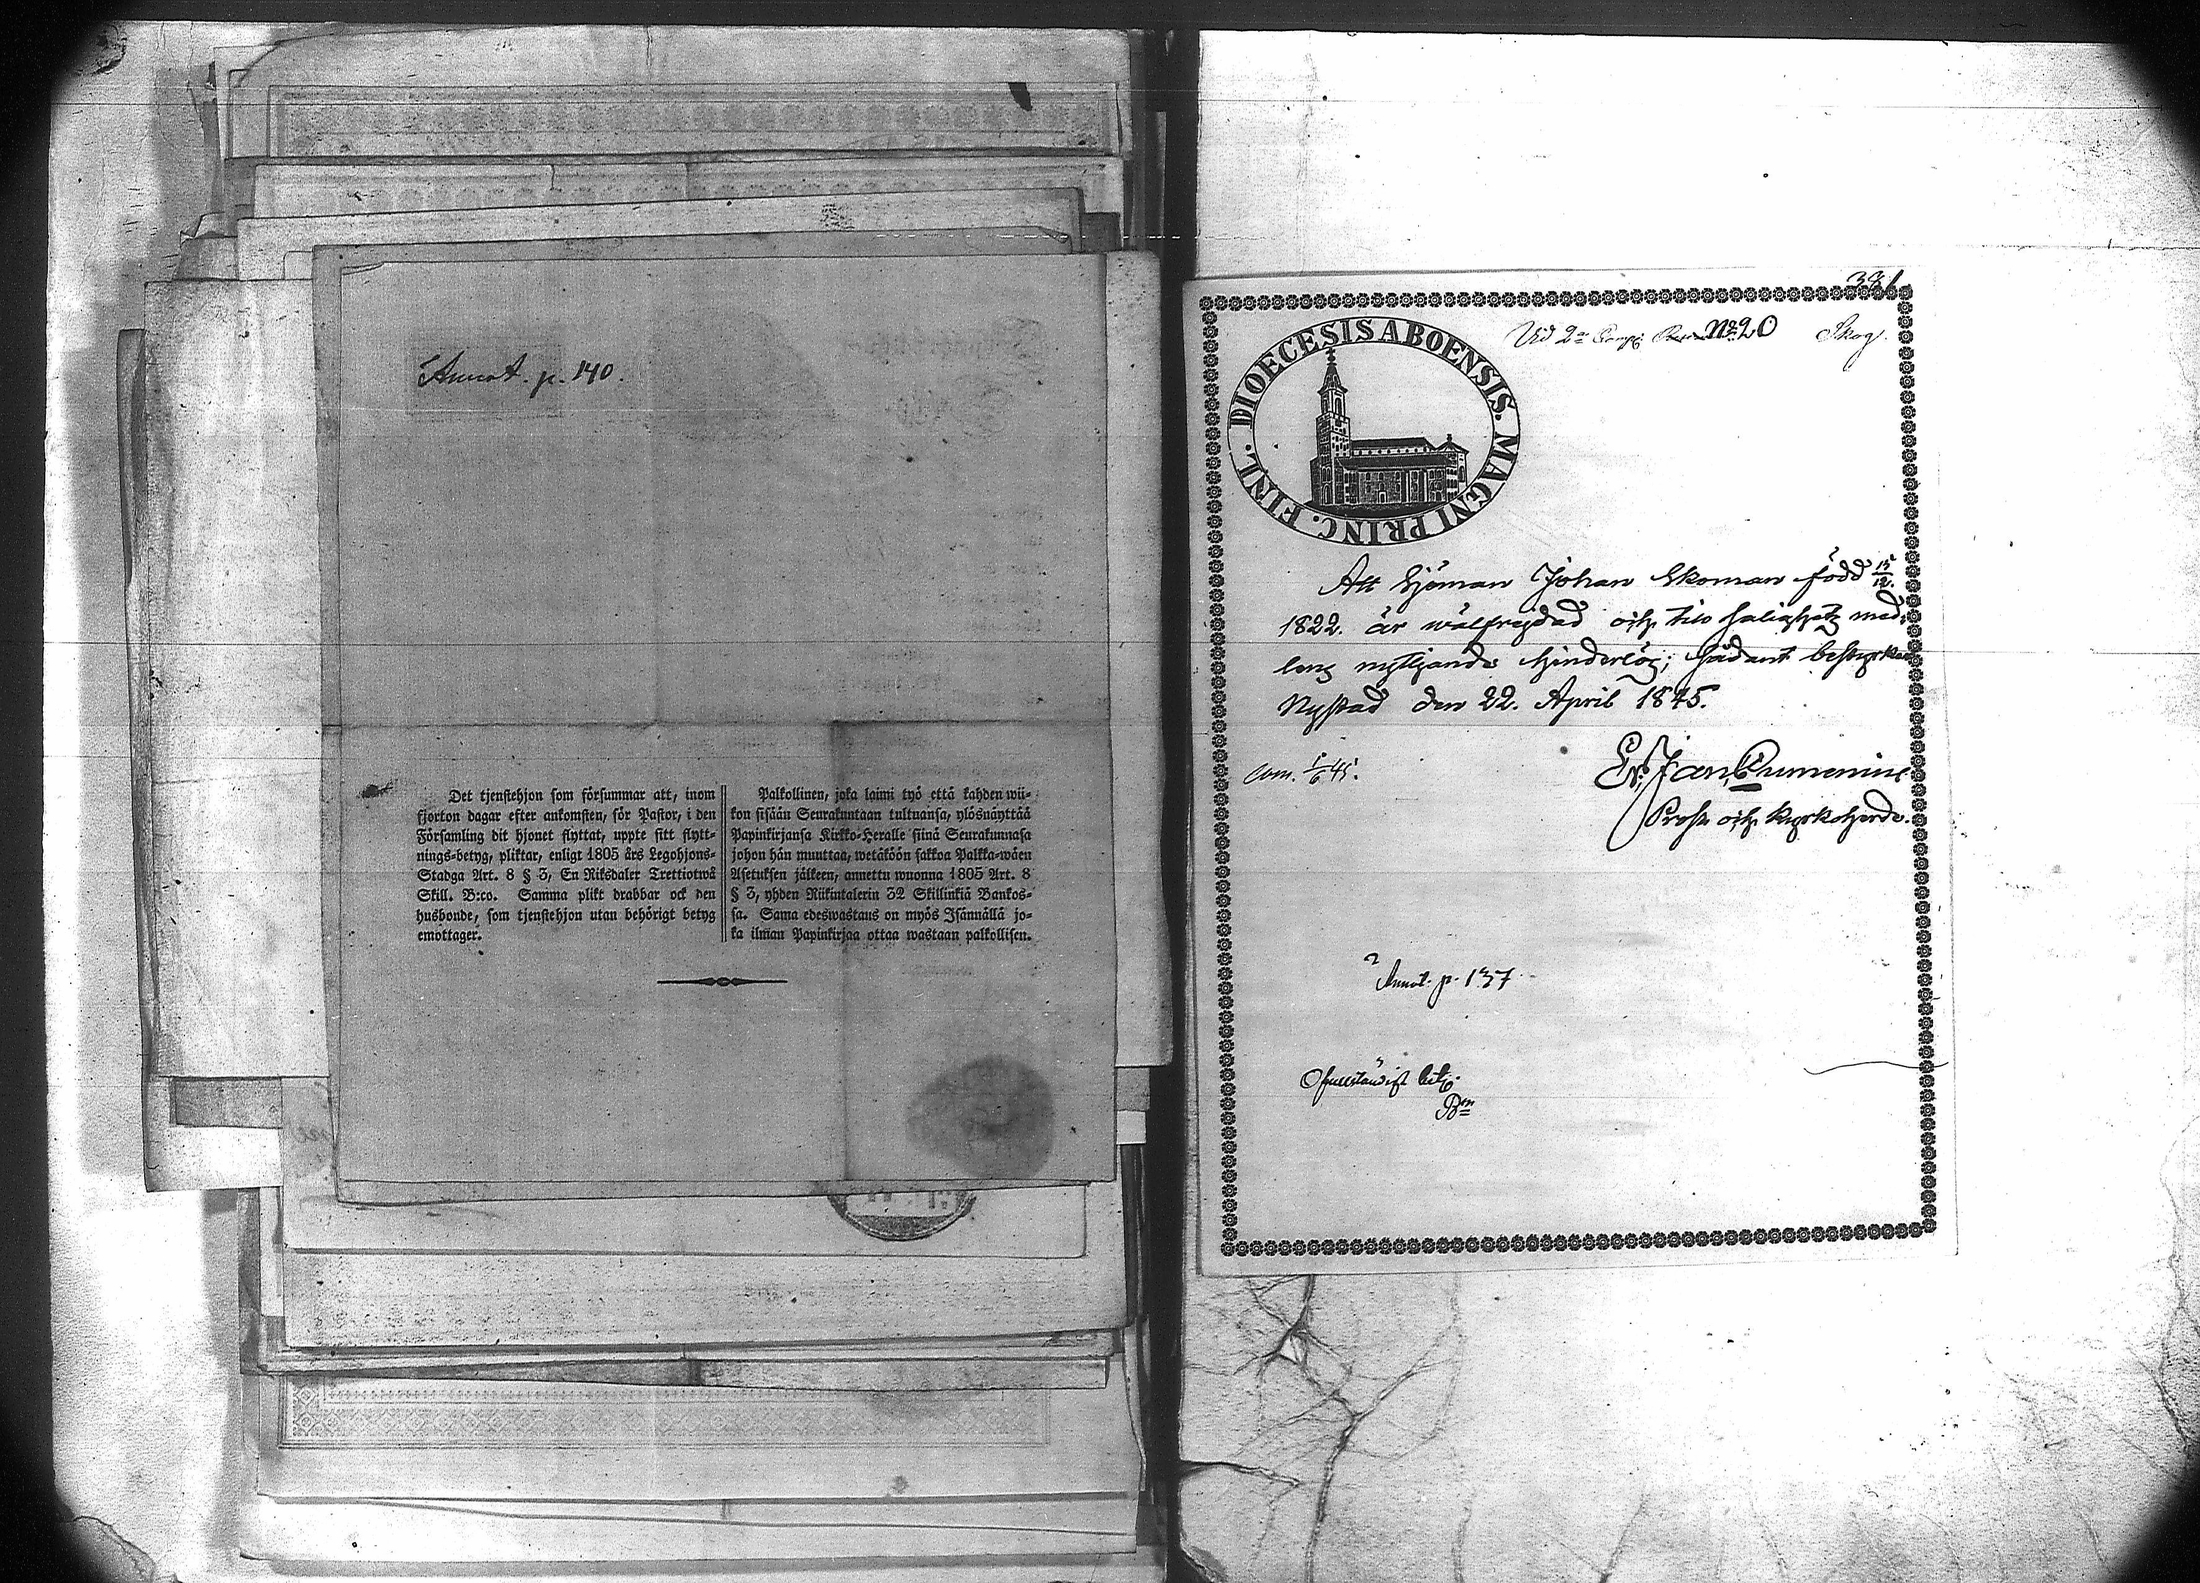 Annot. p. 140.
Det tjenstehjon som försummar att, inom
fjorton dagar efter ankomsten, för Pastor, i den
Församling dit hjonet flyttat, uppte sitt flytt-
nings-betyg, pliktar, enligt 1805 års Legohjons-
Stadga Art. 8 § 3, En Riksdaler Trettiotwå
Skill. B:co. Samma plikt drabbar ock den
husbonde, som tjenstehjon utan behörigt betyg
emottager.
Palkollinen, joka laimi työ että kahden wii-
kon sisään Seurakuntaan tultuansa, ylösnäyttää
Papinkirjansa Kirkko-Heralle siinä Seurakunnasa
johon hän muuttaa, wetäköön sakkoa Palkka-wäen
Asetuksen jälkeen, annettu wuonna 1805 Art. 8
§ 3, yhden Riikintalerin 32 Skillinkiä Bankos-
sa. Sama edeswastaus on myös Isännällä jo-
ka ilman Papinkirjaa ottaa wastaan palkollisen.
381.
Vid 2a Comp. No 20 Skog.
DIOECESIS ABOENSIS. MAGNI PRINC. FINL.
Att Sjöman Johan Ekoman född 15/12.
1822. är wälfrejdad och till salighetz med-
lens nyttjande hinderlös; sådant bestyrkes
Nystad den 22. April 1845.
Er. Joh. Cumenius
Prost och Kyrkoherde.
Com. 1/6 45.
Annot. p. 137
Ofullständigt bet.
Bm